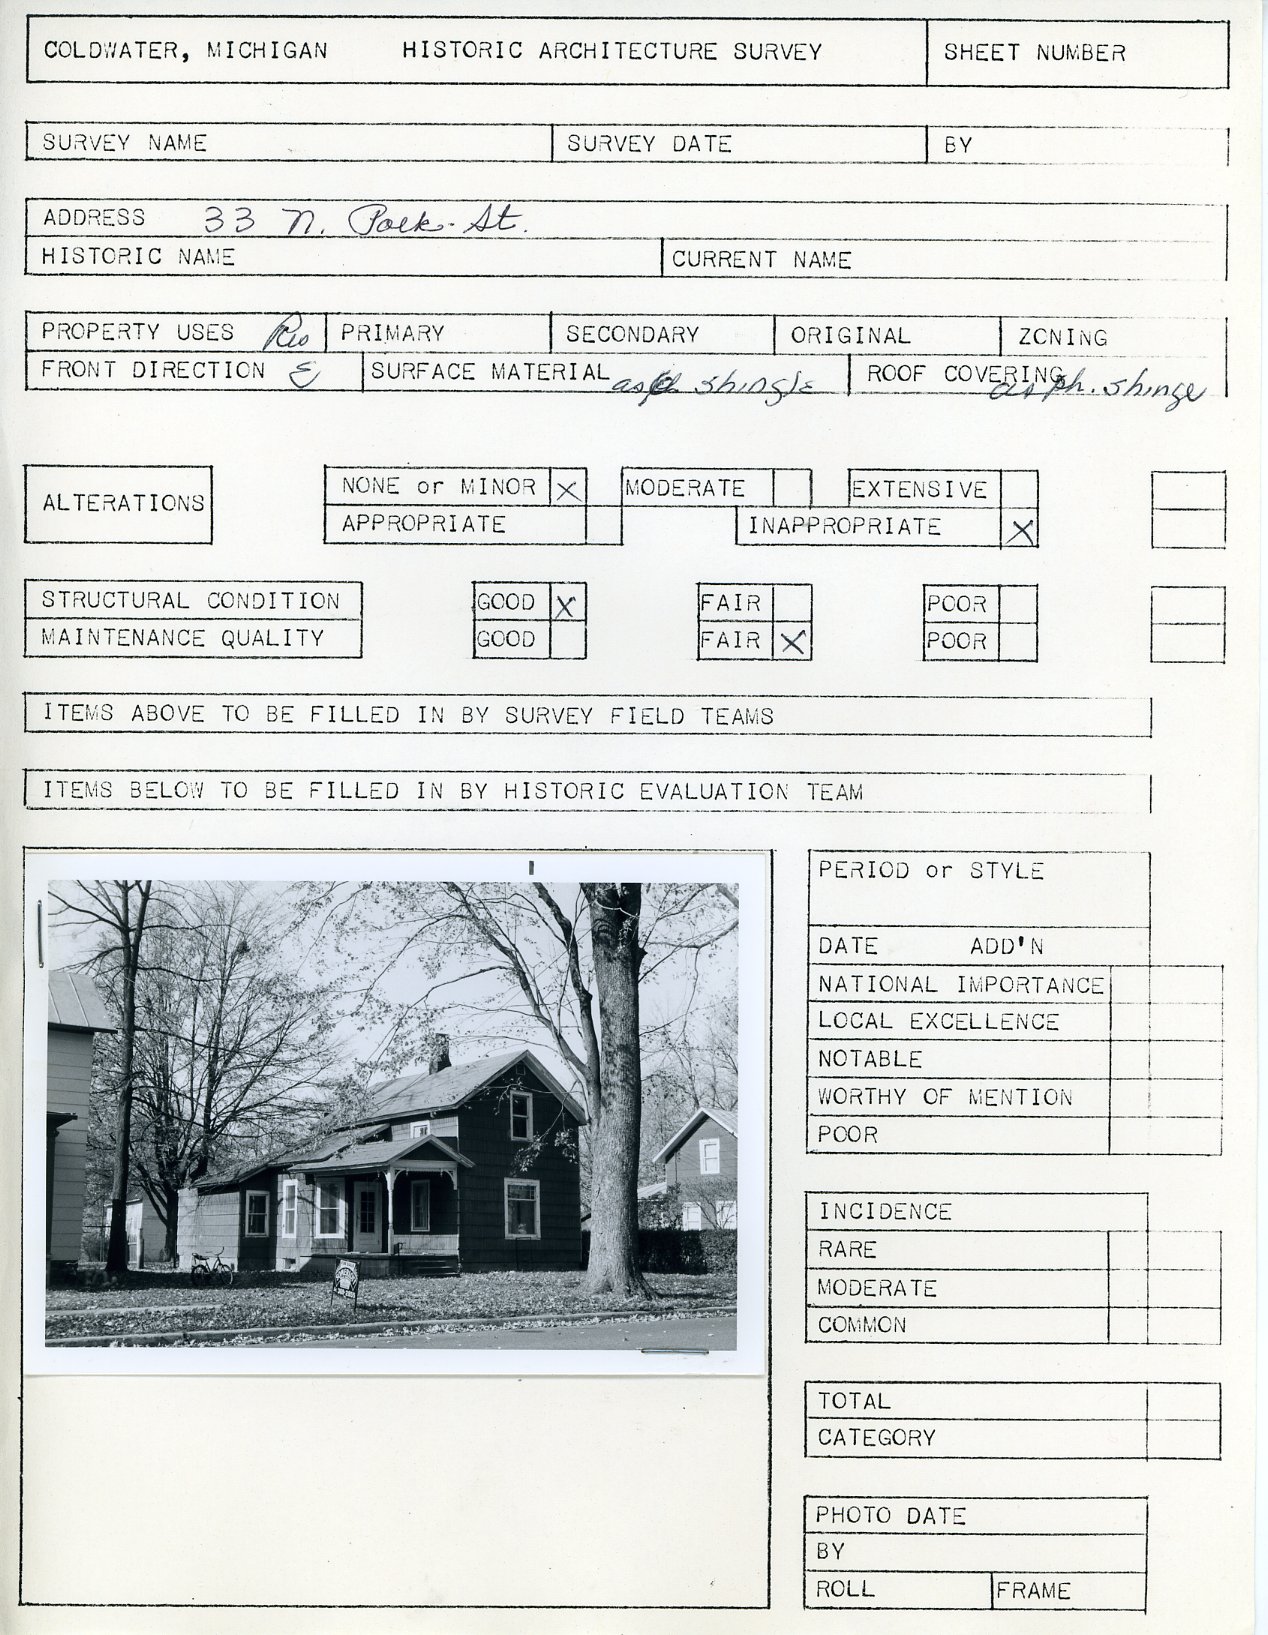 COLDWATER, MICHIGAN HISTORIC ARCHITECTURE SURVEY SHEET NUMBER
SURVEY NAME SURVEY DATE BY
ADDRESS 33 N. Polk St.
HISTORIC NAME CURRENT NAME
PROPERTY USES Res PRIMARY SECONDARY ORIGINAL ZONING
FRONT DIRECTION E SURFACE MATERIAL asph shingle ROOF COVERING asph. shinge
ALTERATIONS NONE or MINOR X MODERATE EXTENSIVE
APPROPRIATE INAPPROPRIATE X
STRUCTURAL CONDITION GOOD X FAIR POOR
MAINTENANCE QUALITY GOOD FAIR X POOR
ITEMS ABOVE TO BE FILLED IN BY SURVEY FIELD TEAMS
ITEMS BELOW TO BE FILLED IN BY HISTORIC EVALUATION TEAM
PERIOD or STYLE
DATE ADD'N
NATIONAL IMPORTANCE
LOCAL EXCELLENCE
NOTABLE
WORTHY OF MENTION
POOR
INCIDENCE
RARE
MODERATE
COMMON
TOTAL
CATEGORY
PHOTO DATE
BY
ROLL FRAME